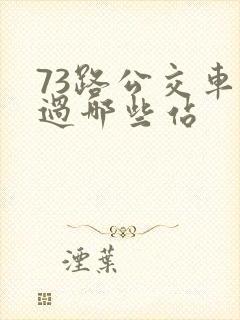 73路公交車
過哪些佔
湮葉